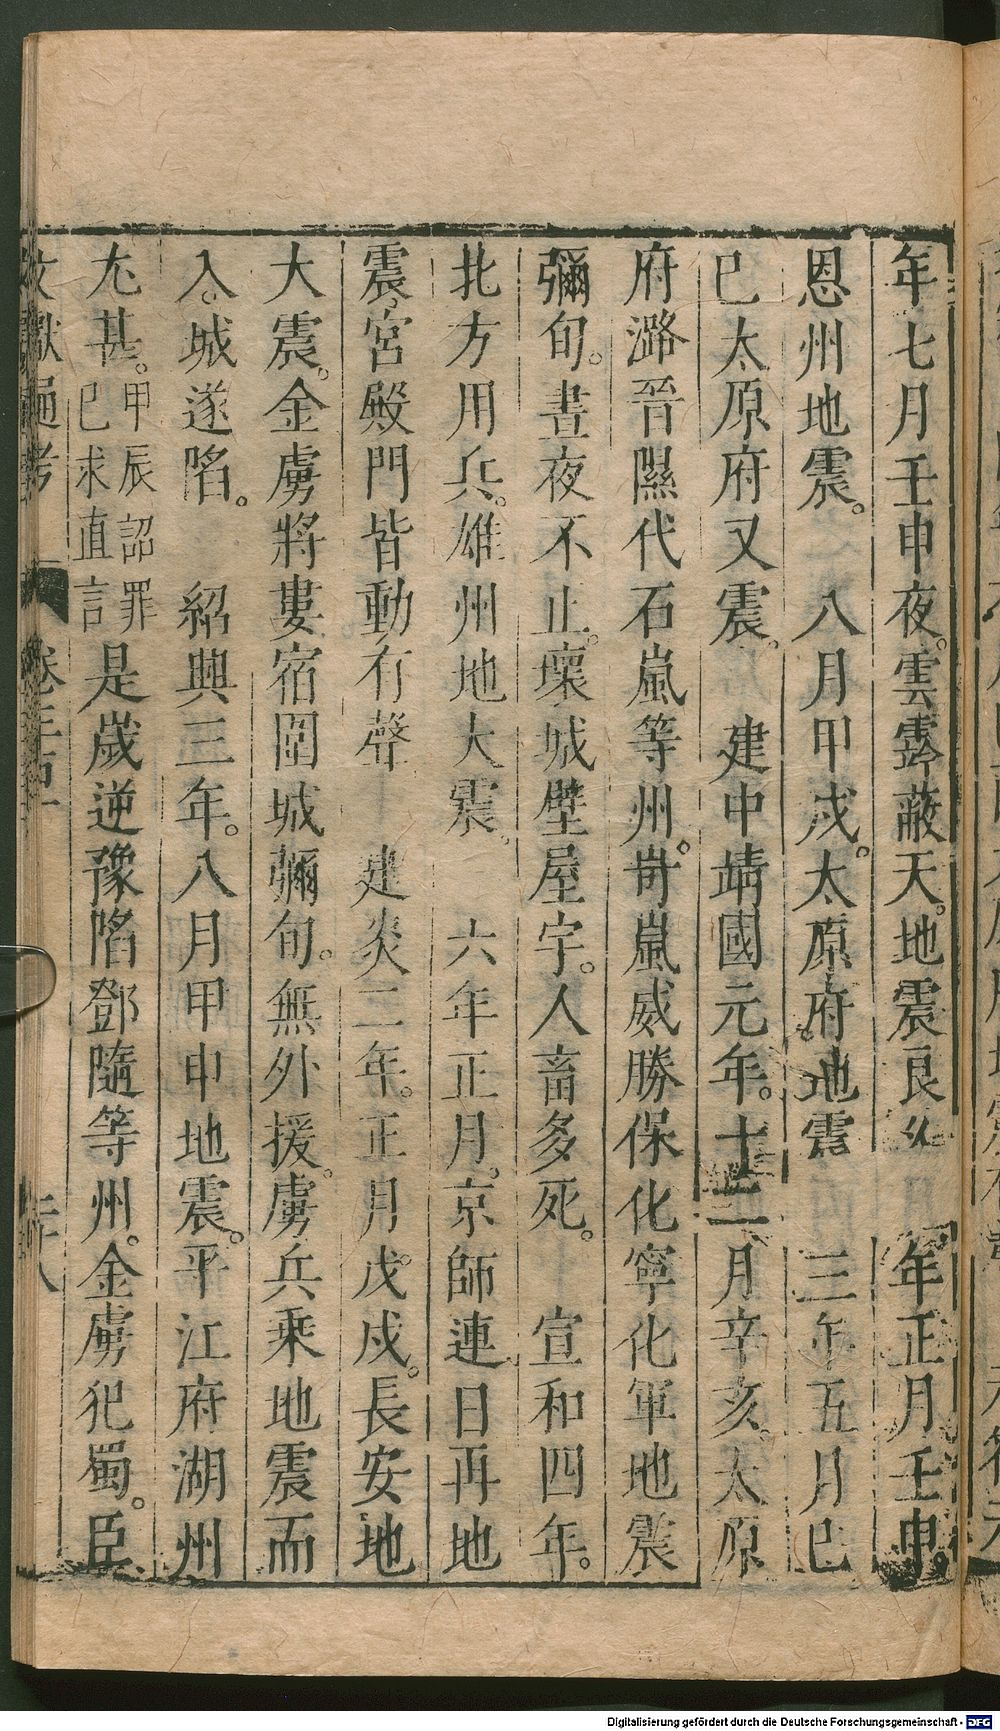 年七月壬申夜。雲霧蔽天。地震良久 年正月壬申。
恩州地震。 八月甲戌。太原府地震 三年五月己
巳太原府又震。 建中靖國元年。十二月辛亥。太原
府潞晉隰代石嵐等州。岢嵐威勝保化寧化軍地震
彌旬。晝夜不止。壞城壁屋宇。人畜多死。 宣和四年。
北方用兵。雄州地大震。 六年正月。京師連日再地
震。宮殿門皆動有聲 建炎二年。正月戊戌。長安地
大震。金虜將婁宿圍城彌旬。無外援。虜兵乘地震而
入。城遂陷。 紹興三年。八月甲申地震。平江府湖州
尤甚。甲辰詔罪己求直言是歲逆豫陷鄧隨等州。金虜犯蜀。臣
文獻通考 卷三百一 二十八
Digitalisierung gefördert durch die Deutsche Forschungsgemeinschaft - DFG